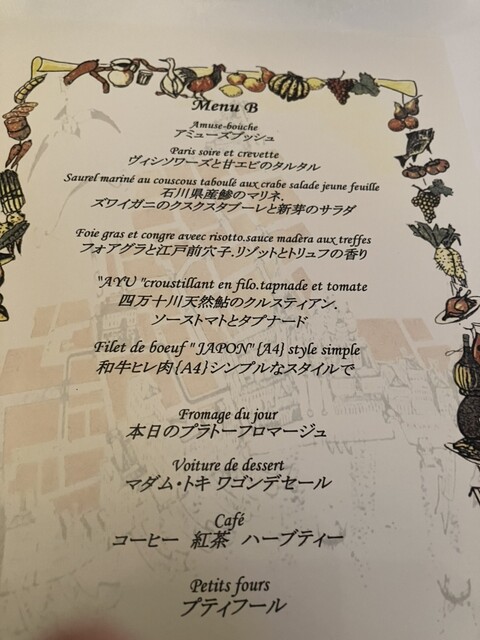 Menu B
Amuse-bouche
アミューズブッシュ
Paris soire et crevette
ヴィシソワーズと甘エビのタルタル
Saurel mariné au couscous taboulé aux crabe salade jeune feuille
石川県産鯵のマリネ.
ズワイガニのクスクスタブーレと新芽のサラダ
Foie gras et congre aveec risotto.sauce madèra aux treffes
フォアグラと江戸前穴子.リゾットとトリュフの香り
"AYU "croustillant en filo.tapnade et tomate
四万十川天然鮎のクルスティアン.
ソーストマトとタプナード
Filet de boeuf " JAPON" {A4} style simple
和牛ヒレ肉{A4}シンプルなスタイルで
Fromage du jour
本日のプラトーフロマージュ
Voiture de dessert
マダム・トキ ワゴンデセール
Café
コーヒー 紅茶 ハーブティー
Petits fours
プティフール